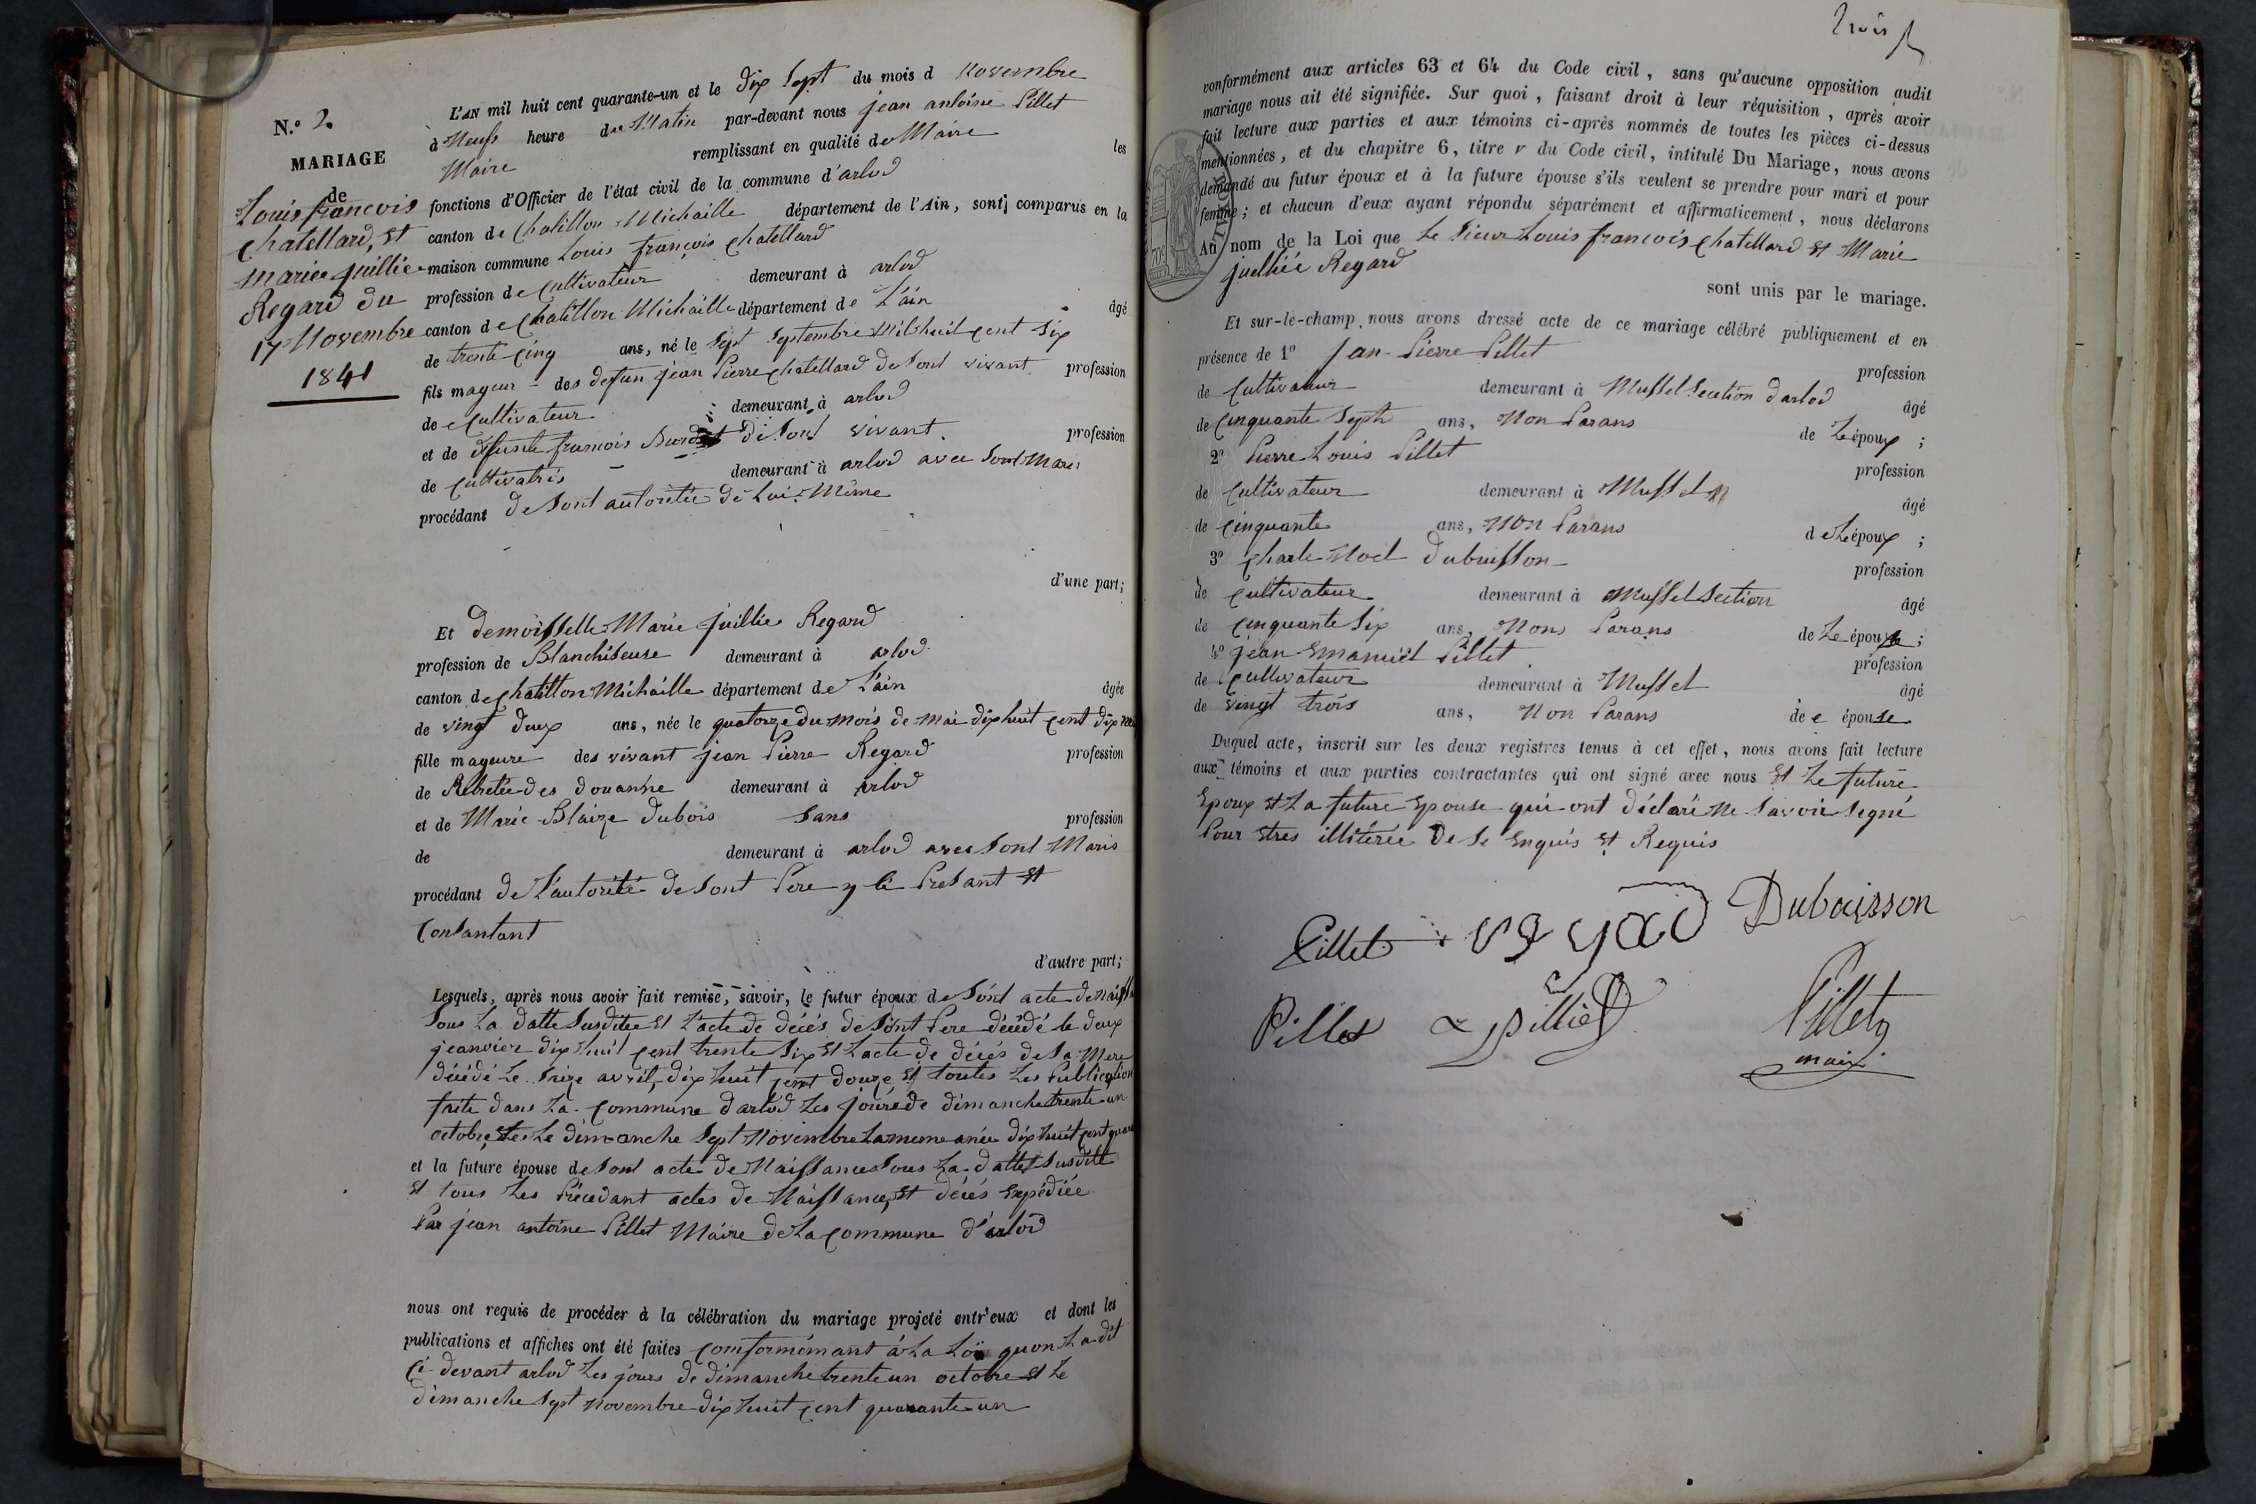 N.° 2.
MARIAGE
de
Louis françois
chatellard, et
marie juillie
Regard du
17 Novembre
1841
L'AN mil huit cent quarante-un et le dix Sept du mois d Novembre
à Neuf heure du Matin par-devant nous jean antoine Pillet
Maire remplissant en qualité de Maire les
fonctions d'Officier de l'état civil de la commune d'arlod
canton de Chatillon Michaille département de l'Ain, sont comparus en la
maison commune Louis françois chatellard
profession de Cultivateur demeurant à arlod
canton de Chatillon Michaille département de L'ain âgé
de trente Cinq ans, né le Sept Septembre Mil huit cent Six
fils mageur des defun jean Pierre chatellard de Sont vivant profession
de Cultivateur demeurant à arlod
et de defunte francois di Sont vivant profession
de Cultivatris demeurant à arlod avec Sont Maris
procédant de Sont autoritée de Lui Même
d'une part;
Et demoisselle Marie juillie Regard
profession de Blanchiseuse demeurant à arlod
canton de Chatillon Michaille département de L'ain âgée
de vingt deux ans, née le quatorze du mois de Mai dix huit cent dix
fille mageure des vivant jean Pierre Regard profession
de Retretée des douanne demeurant à arlod
et de Marie Blaize Dubois Sans profession
de demeurant à arlod avec Sont Maris
procédant de L'autorité de Sont Pere y li Presant et
Consantant
d'autre part;
Lesquels, après nous avoir fait remise, savoir, le futur époux de Sont acte de
Sous La datte Susditee et L'acte de décés de Sont Pere décédé le deux
jeanvier dix huit cent trente Six et L'acte de décés de Sa Mere
décédé Le Treize avril dix huit cent douze et toutes Les Publication
faite dans La Commune d'arlod Les jours de dimanche trente un
octobre et Le dimanche Sept Novembre La meme anée dix huit cent
et la future épouse de Sont acte de Naissance Sous La datte Susditte
et tous Les Précedant actes de Naissance, et décés Expédiée
Par jean antoine Pillet Maire de La Commune d'arlod
nous ont requis de procéder à la célébration du mariage projeté entr'eux et dont les
publications et affiches ont été faites Comformémant à La Loi quon La dit
Ci devant arlod Les jours de dimanche trente un octobre et Le
dimanche Sept Novembre dix huit cent quarante un
trois
conformément aux articles 63 et 64 du Code civil, sans qu'aucune opposition audit
mariage nous ait été signifiée. Sur quoi, faisant droit à leur réquisition, après avoir
fait lecture aux parties et aux témoins ci-après nommés de toutes les pièces ci-dessus
mentionnées, et du chapitre 6, titre V du Code civil, intitulé Du Mariage, nous avons
demandé au futur époux et à la future épouse s'ils veulent se prendre pour mari et pour
femme; et chacun d'eux ayant répondu séparément et affirmativement, nous déclarons
Au nom de la Loi que Le Sieur Louis francois chatellard et Marie
juelliée Regard
sont unis par le mariage.
Et sur-le-champ nous avons dressé acte de ce mariage célébré publiquement et en
présence de 1° Jan Pierre Pillet profession
de Cultivateur demeurant à Mussel Section d'arlod âgé
de Cinquante Septh ans, Non Parans de Le époux ;
2° Pierre Louis Pillet profession
de Cultivateur demeurant à Mussel âgé
de Cinquante ans, Non Parans de Le époux ;
3° charle Noel dubuisson profession
de Cultivateur demeurant à Mussel Section âgé
de Cinquante Six ans, Nons Parans de Le époux ;
4° jean Emanuël Pillet profession
de Cultivateur demeurant à Mussel âgé
de vingt trois ans, Non Parans de e épouse
Duquel acte, inscrit sur les deux registres tenus à cet effet, nous avons fait lecture
aux témoins et aux parties contractantes qui ont signé avec nous et Le future
Epoux et La future Epouse qui ont déclaré ne Savoir Segné
Pour Etres illitérée de Se Enquis et Requis
Pillet Dubuisson
Pillet Pilliet Pillet
maire